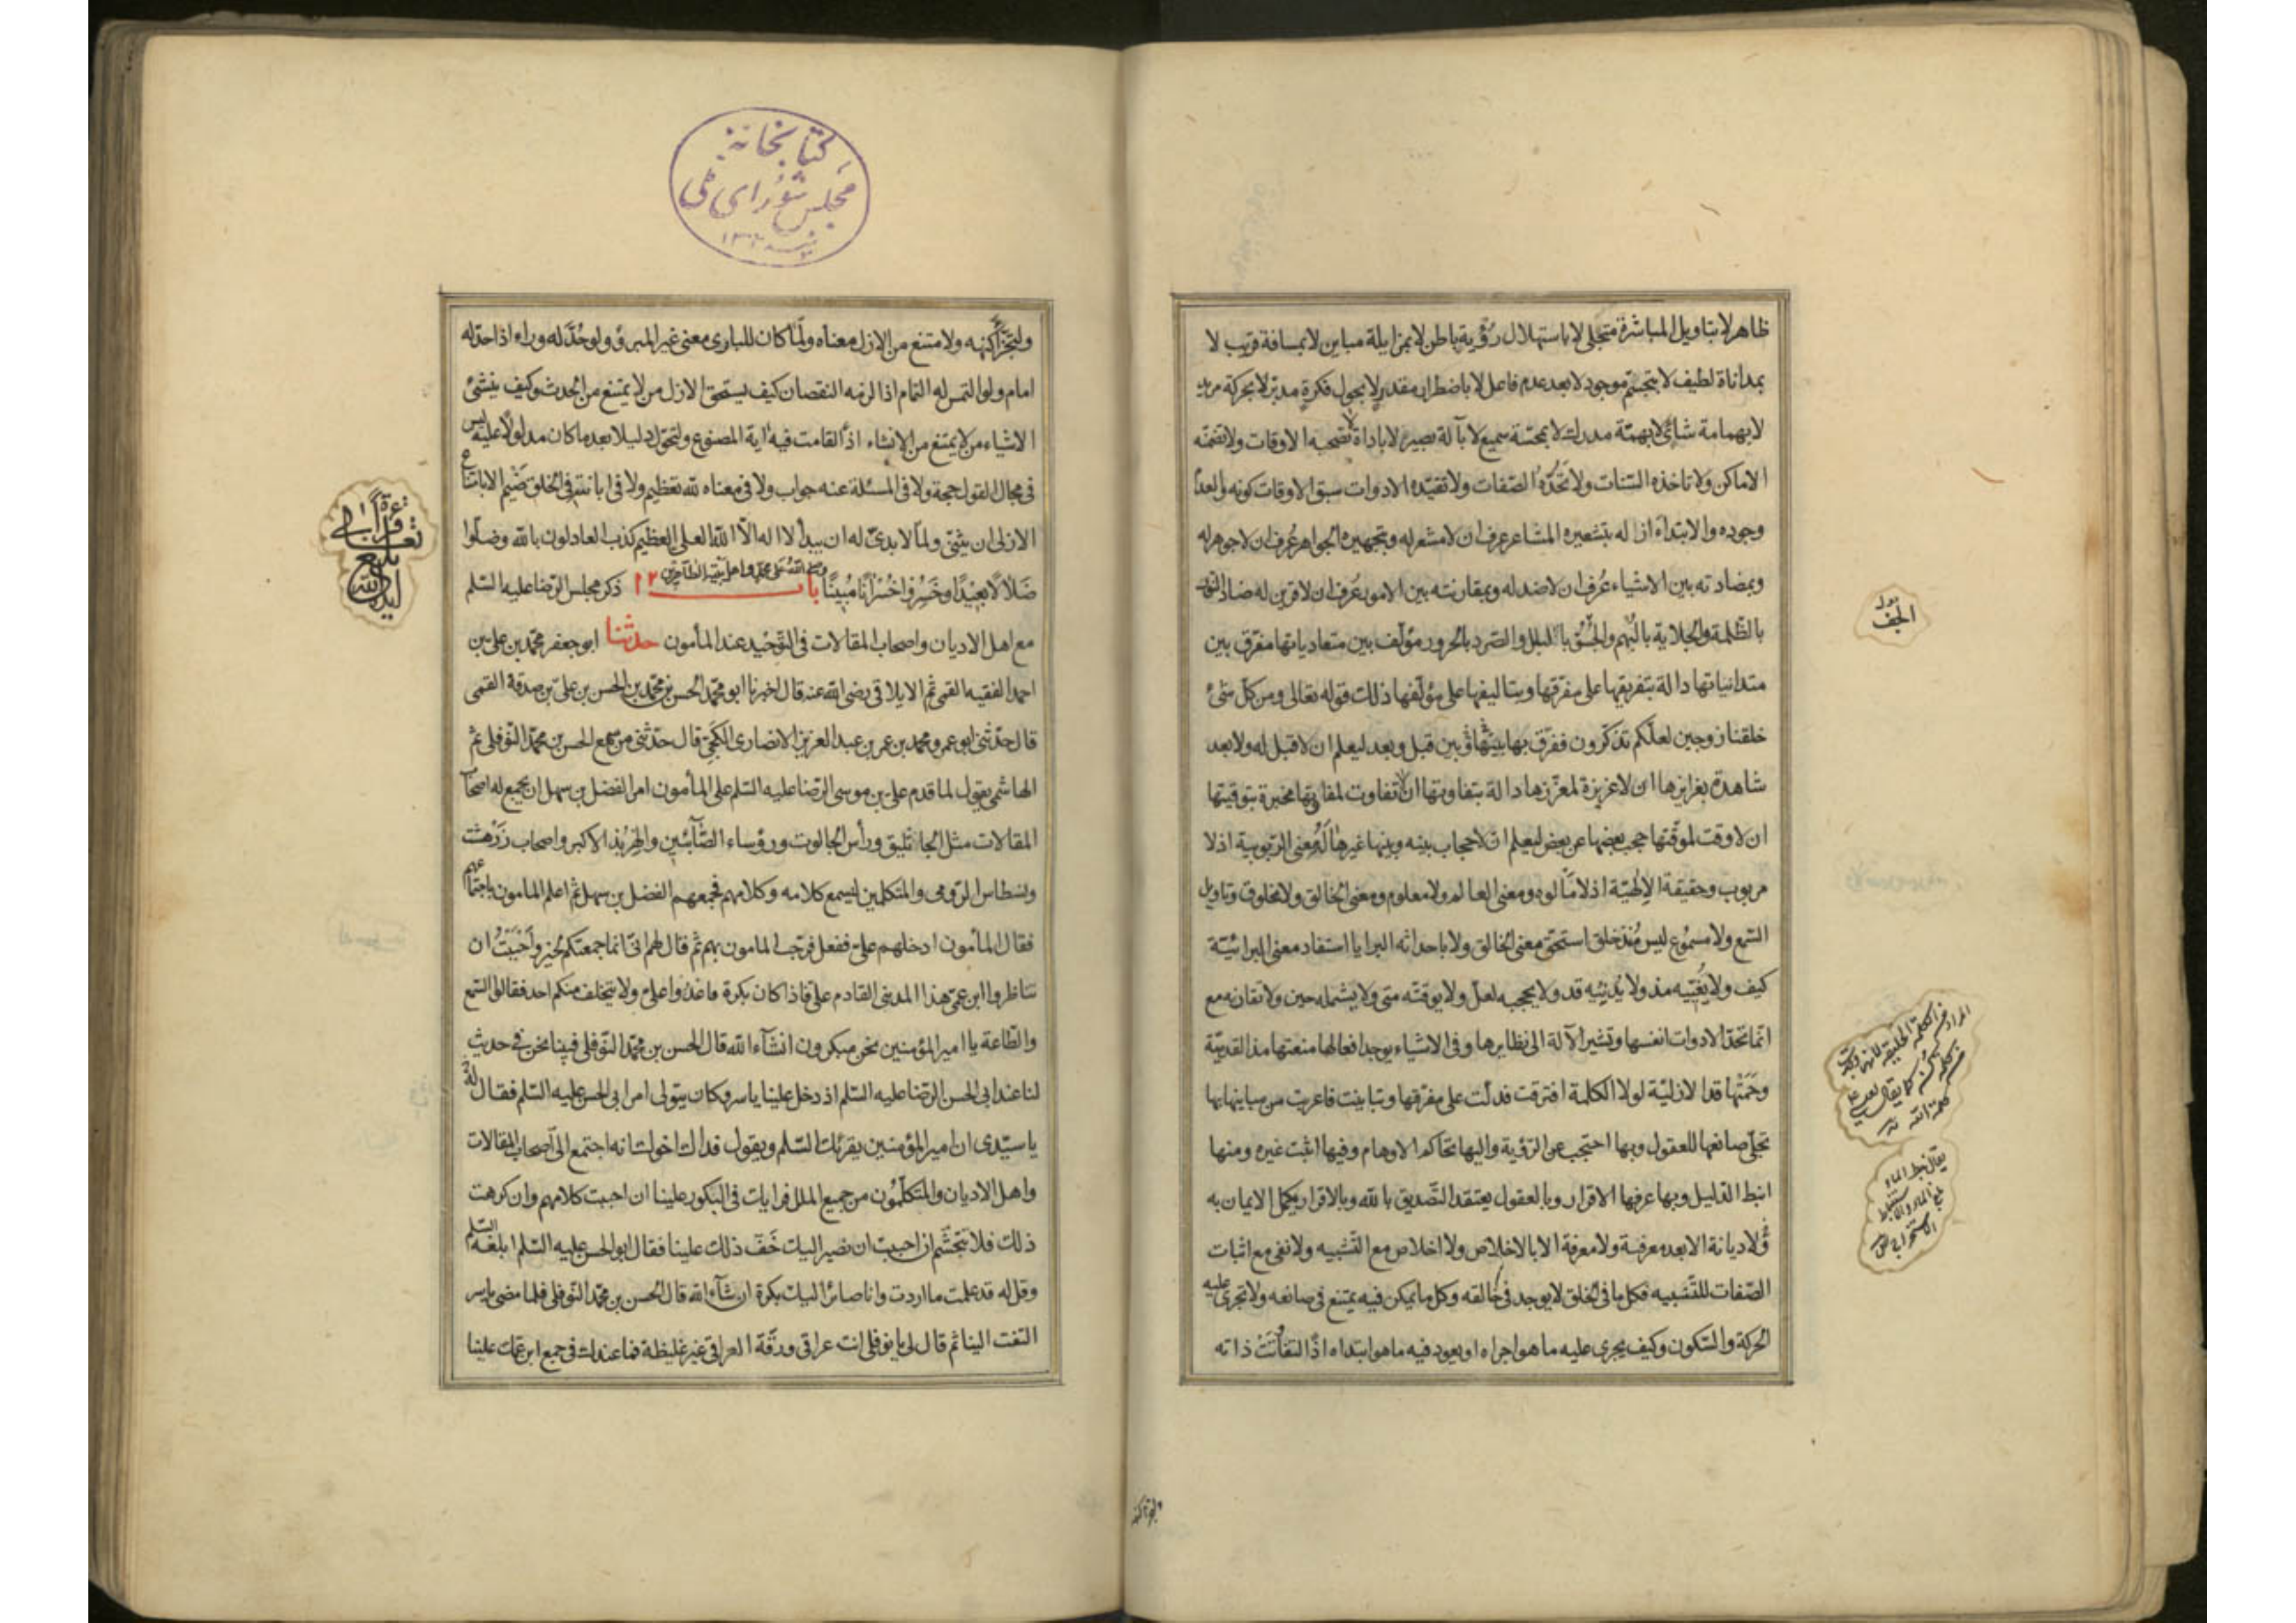 ظاهر لا بتاويل المباشرة متجلى لا باستهلال رؤية باطن لا بمزايلة مباين لا بمسافة قريب لا
بمداناة لطيف لا بتجسّم موجود لا بعد عدم فاعل لا باضطرار مقدر لا بجول فكرة مدبّر لا بحركة مريد
لا بهمامة شائى لا بهمّة مدرك لا بمجسّة سميع لا بآلة بصير لا باداة لا تصحبه الاوقات ولا تضمّنه
الاماكن ولا تاخذه السّنات ولا تحدّه الصّفات ولا تقيّده الادوات سبق الاوقات كونه والعدم
وجوده والابتداء ازله بتشعيره المشاعر عرف ان لا مشعر له وبتجهيره الجواهر عُرف ان لا جوهر له
وبمضادته بين الاشياء عُرف ان لا ضد له وبمقارنته بين الامور عُرف ان لا قرين له ضاد النور
بالظّلمة والجلاية بالبُهم والجُسُق بالبلل والصّرد بالحرور مؤلّف بين متعادياتها مفرّق بين
متدانياتها دالة بتفريقها على مفرّقها وبتاليفها على مؤلّفها ذلك قوله تعالى ومن كلّ شئ
خلقنا زوجين لعلّكم تذكّرون ففرّق بها بينها وبين قبل وبعد ليعلم ان لا قبل له ولا بعد
شاهدة بغرايزها ان لا غريزة لمغرّزها دالة بتفاوتها ان لا تفاوت لمفاوتها مخبرة بتوقيتها
ان لا وقت لموقّتها حجب بعضها عن بعض ليعلم ان لا حجاب بينه وبينها غيرها له معنى الرّبوبية اذ لا
مربوب وحقيقة الالهيّة اذ لا مألوه ومعنى العالم ولا معلوم ومعنى الخالق ولا مخلوق وتاويل
السّمع ولا مسموع ليس مُنذ خلق استحقّ معنى الخالق ولا باحداثه البرايا استفاد معنى البرائيّة
كيف ولا يُغيّبه مذ ولا يُدنيه قد ولا يحجبه لعلّ ولا يوقّته متى ولا يشمله حين ولا تقارنه مع
انّما تحدّ الادوات انفسها وتشير الآلة الى نظايرها وفى الاشياء يوجد افعالها منعتها مذ القدميّة
وحَمَتْها قد الازليّة لولا الكلمة افترقت فدلّت على مفرّقها وتباينت فاعربت من مباينها بها
تجلّى صانعها للعقول وبها احتجب عن الرّؤية واليها تحاكم الاوهام وفيها اثبت غيره ومنها
انبط الدّليل وبها عرفها الاقرار وبالعقول يعتقد التّصديق بالله وبالاقرار يكمل الايمان به
ولا ديانة الا بعد معرفة ولا معرفة الا بالاخلاص ولا اخلاص مع التّشبيه ولا نفى مع اثبات
الصّفات للتّشبيه فكل ما فى الخلق لا يوجد فى خالقه وكل ما يمكن فيه يمتنع فى صانعه ولا تجرى عليه
الحركة والسّكون وكيف يجرى عليه ما هو اجراه او يعود فيه ما هو ابتداه اذًا لتفاتَتْ ذاته
بدل
الجف
المراد من الكلمة الخليقة لانها وجدت
من كلمة كن كما يقال لعيسى
كلمة الله
يقال نبط الماء
نبع الماء والاستنباط
الاستخراج
ولتجزأ كنهه
كتابخانه
مجلس شورای ملی
ولتجزّأ كنهه ولامتنع من الازل معناه ولمّا كان للبارى معنى غير المبروّ ولو حُدّ له وراء اذا حدّ له
امام ولو التمس له التمام اذا لزمه النقصان كيف يستحقّ الازل من لا يمتنع من الحدث وكيف ينشئ
الاشياء من لا يمتنع من الانشاء اذًا لقامت فيه اية المصنوع ولتحوّل دليلا بعد ما كان مدلولًا عليه ليس
فى مجال القول حجة ولا فى المسئلة عنه جواب ولا فى معناه لله تعظيم ولا فى ابانته فى الخلق ضَيْم الا بامتناع
الازلى ان يثنّى ولما لا بدئ له ان يبدأ لا اله الّا الله العلى العظيم كذب العادلون بالله وضلّوا
ضَلالًا بعِيْدًا وخَسِرُوا خُسْرَانًا مُبِينًا وصلى الله على محمد واهل بيته الطاهرين باب ١٢ ذكر مجلس الرّضا عليه السّلم
مع اهل الاديان واصحاب المقالات فى التّوحيد عند المأمون حدثنا ابو جعفر محمّد بن على بن
احمد الفقيه القمى ثم الايلاقى رضى الله عنه قال اخبرنا ابو محمّد الحسن بن محمّد بن الحسن بن علىّ بن صدقة القمى
قال حدّثنى ابو عمرو محمد بن عمر بن عبد العزيز الانصارى الكجّى قال حدّثنى من سمع الحسن بن محمّد النّوفلى ثم
الهاشمى يقول لما قدم على بن موسى الرّضا عليه السّلم على المأمون امر الفضل بن سهل ان يجمع له اصحاب
المقالات مثل الجاثليق ورأس الجالوت ورؤساء الصّآبئين والهِرْبُذ الاكبر واصحاب زَرْهشت
ونسطاس الرّومى والمتكلمين ليسمع كلامه وكلامهم فجمعهم الفضل بن سهل ثم اعلم المامون باجتماعهم
فقال المأمون ادخلهم علىّ ففعل فرحّب المامون بهم ثم قال لهم انّى انما جمعتكم لخير واحْبَبْتُ ان
تناظروا ابن عمّى هذا المدينى القادم علىّ فاذا كان بكرة فاغدوا علىّ ولا يتخلف منكم احد فقالوا السّمع
والطّاعة يا امير المؤمنين نحن مبكرون انشآء الله قال الحسن بن محمّد النّوفلى فبينا نحن فى حديث
لنا عند ابى الحسن الرّضا عليه السّلم اذ دخل علينا ياسر وكان يتولى امر ابى الحسن عليه السّلم فقال له
يا سيّدى ان امير المؤمنين يقرئك السّلم ويقول فداك اخوك انه اجتمع الىّ اصحاب المقالات
واهل الاديان والمتكلّمون من جميع الملل فرايك فى البكور علينا ان احببت كلامهم وان كرهت
ذلك فلا تتجشّم ان احببت ان نصير اليك خَفّ ذلك علينا فقال ابو الحسن عليه السّلم ابلغه السّلم
وقل له قد علمت ما اردت وانا صائر اليك بكرة ان شآء الله قال الحسن بن محمّد النّوفلى فلما مضى ياسر
التفت الينا ثم قال لى يا نوفلى انت عراقى ورقّة العراقى غير غليظة فما عندك فى جمع ابن عمّك علينا
بلغ
ايده الله